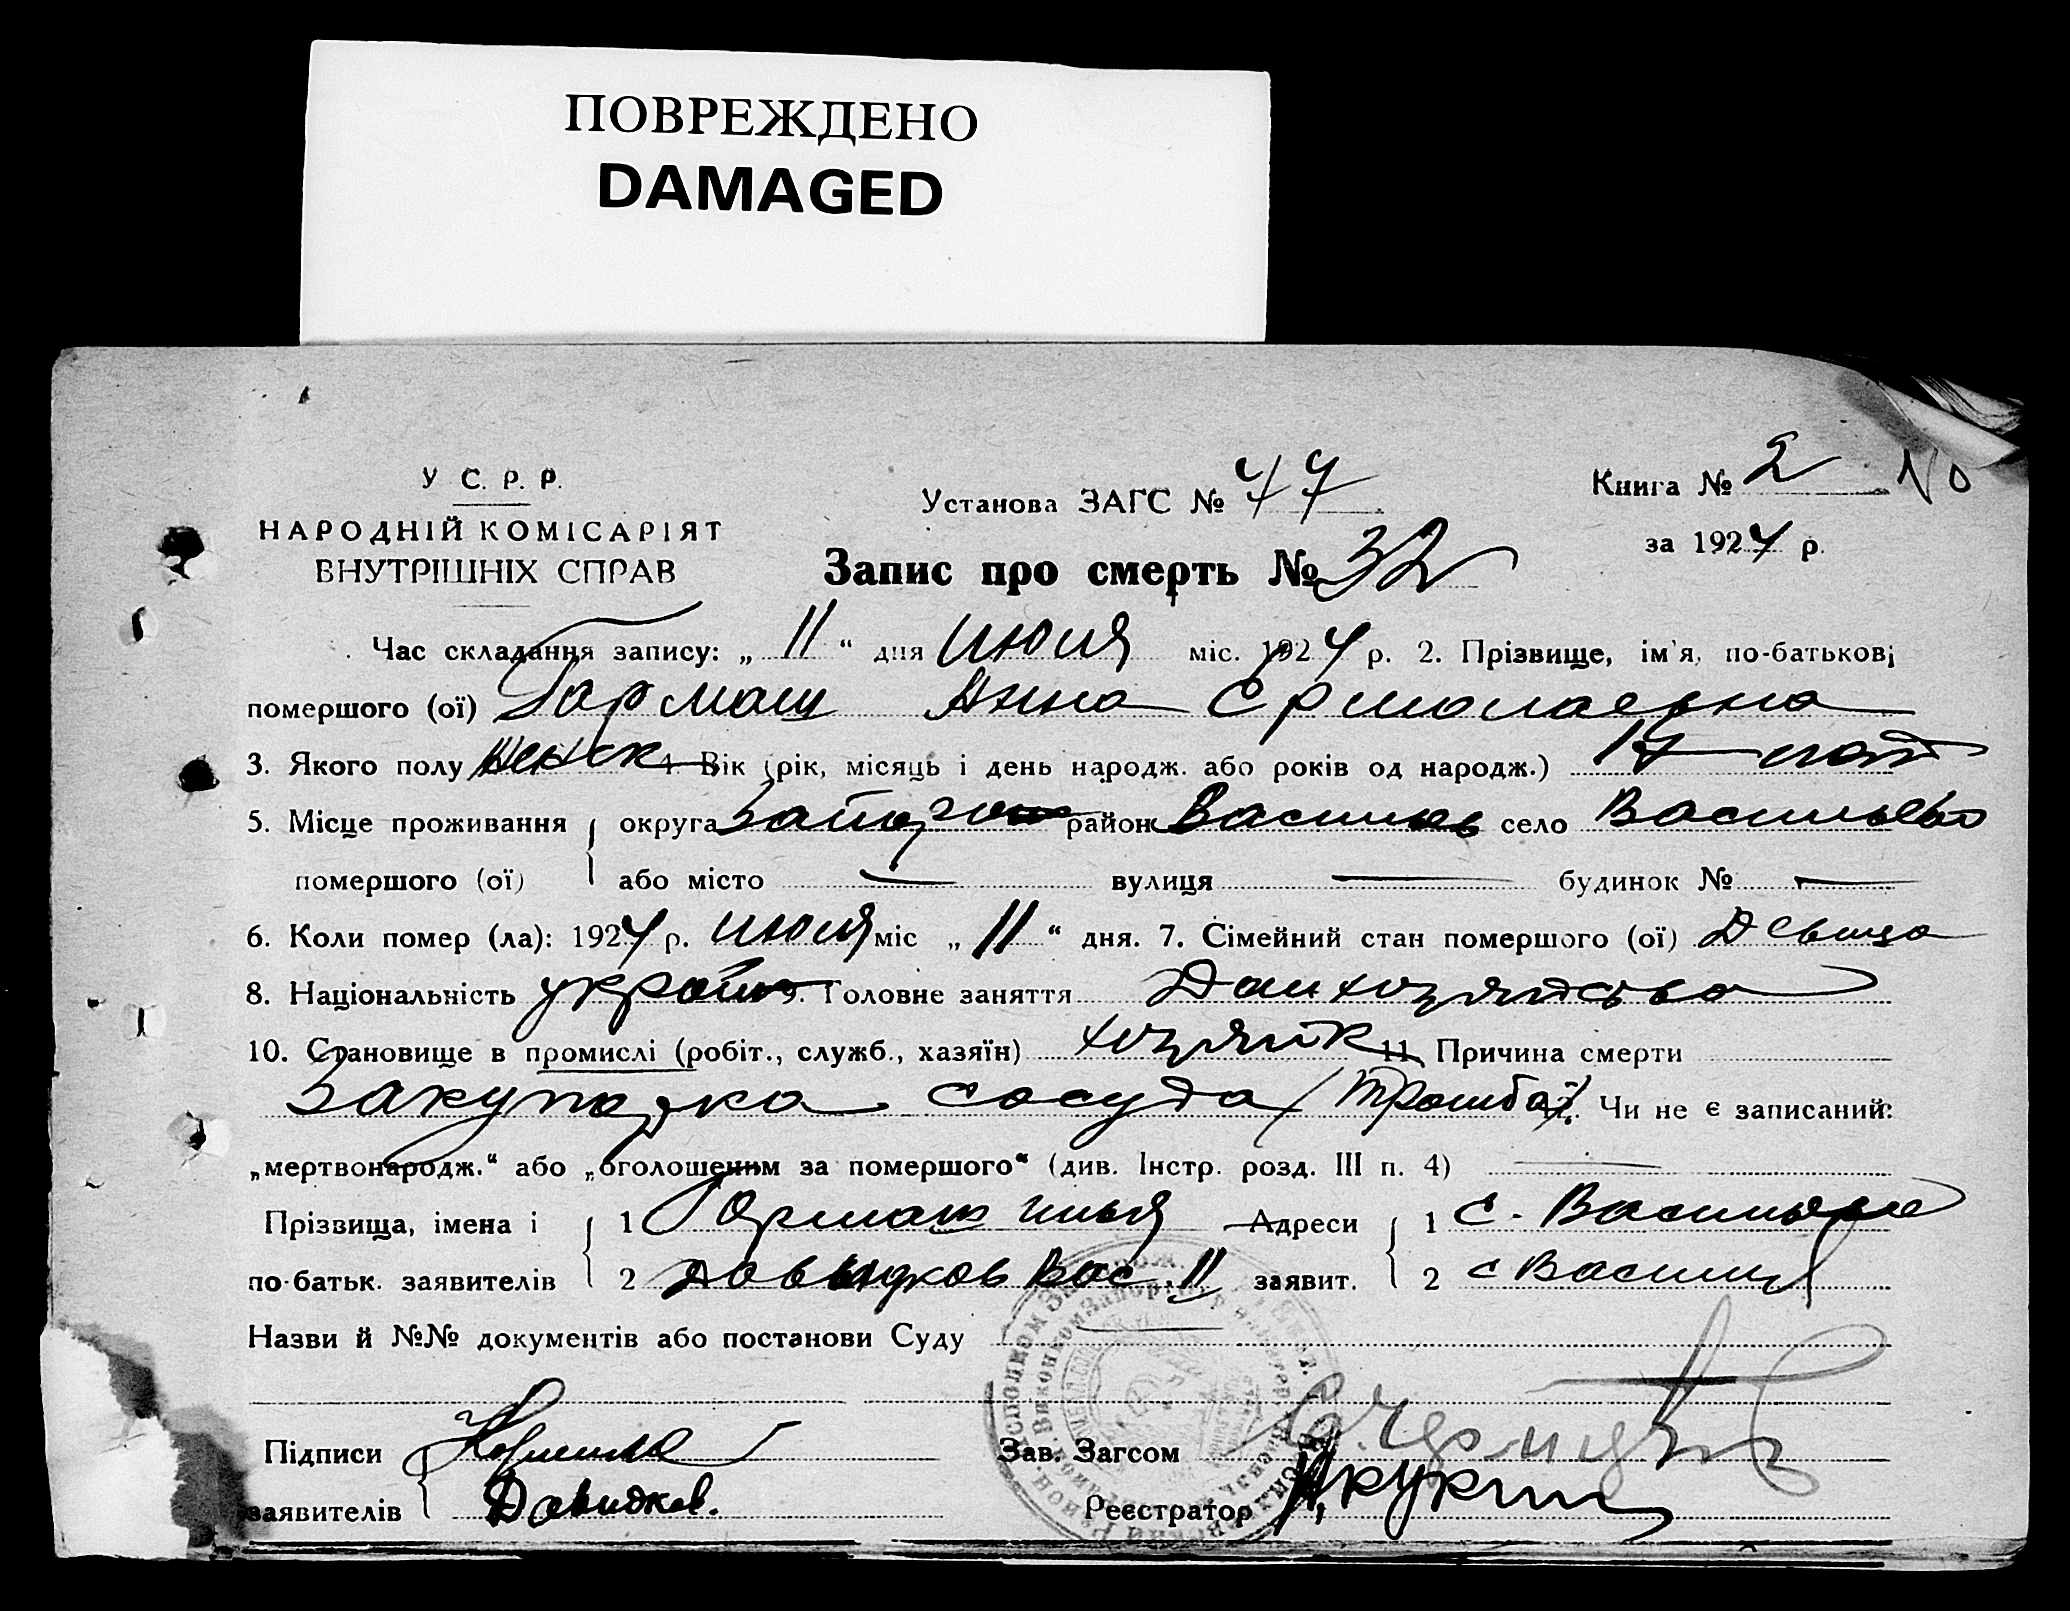 ПОВРЕЖДЕНО
DAMAGED
У С. Р. Р.
НАРОДНІЙ КОМІСАРІЯТ
ВНУТРІШНІХ СПРАВ
Установа ЗАГС № 47
Запис про смерть № 32
Книга № 2 No
за 1924 р.
Час складання запису: „ 11 “ дня июня міс. 1924 р. 2. Прізвище, ім'я, по-батькові
помершого (ої) Гармаш Анна Ермолаевна
3. Якого полу женск 4. Вік (рік, місяць і день народж. або років од народж.) 17 лет
5. Місце проживання округа Запорож район Васильев село Васильево
помершого (ої) або місто — вулиця — будинок № —
6. Коли помер (ла): 1924 р. июня міс „ 11 “ дня. 7. Сімейний стан помершого (ої) Девица
8. Національність украин 9. Головне заняття Домхозяйство
10. Становище в промислі (робіт., служб., хазяїн) хозяйк 11 Причина смерти
Закупорка сосуда (тромбоз). Чи не є записаний:
„мертвонародж.“ або „оголошеним за помершого“ (див. Інстр. розд. III п. 4) —
Прізвища, імена і 1 Гармаш Илья Адреси 1 с. Васильевке
по-батьк. заявителів 2 Давыдков Вас. заявит. 2 с Васил
Назви й №№ документів або постанови Суду —
Підписи Зав. Загсом
заявителів Давидков. Реєстратор